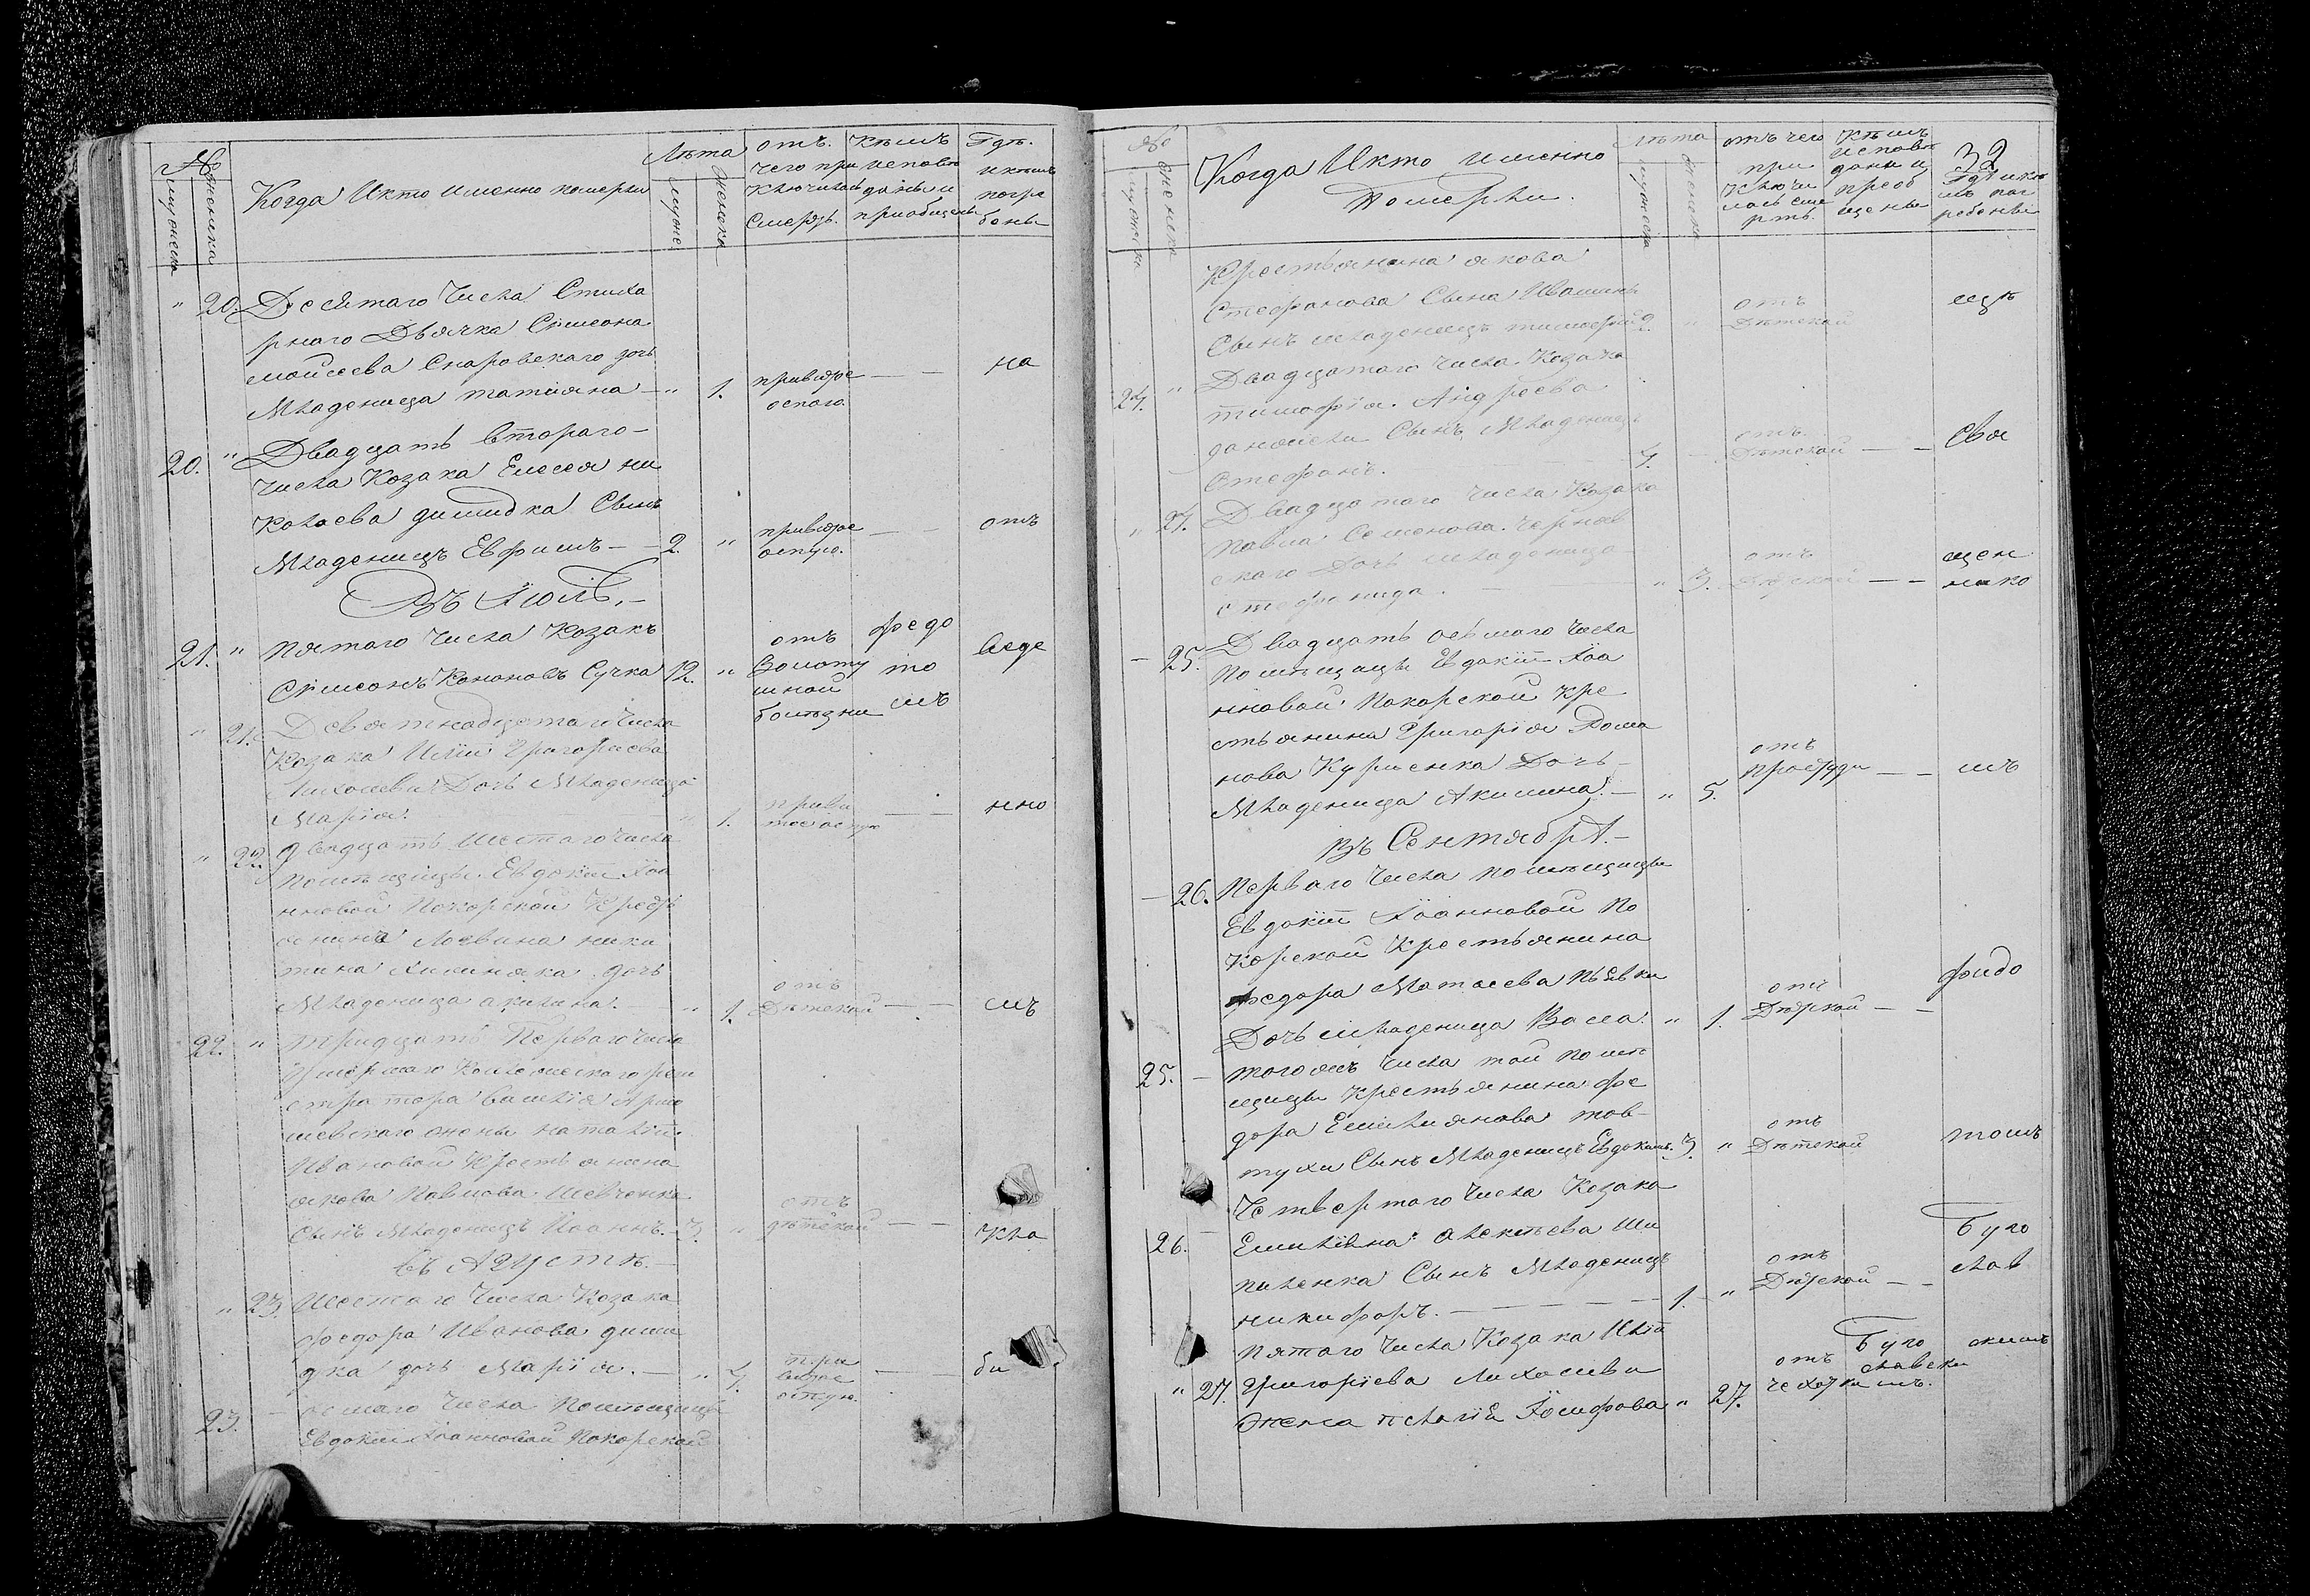 №
мужеска
женска
Когда Икто именно померли
Лѣта
муже
женска
отъ. Кѣмъ Гдѣ.
чего при исповѣ икѣмъ
ключилась даны и погре
Смерть. приобщены бены
" 20. Десятаго Числа Стиха
рнаго Дьячка Сѵмеона
моисеева Снаровскаго дочь
Младеница татияна — " 1. привитре оспого — — на
20. " Двадцать втораго
числа Козака Елесея ни
колаева дишдка Сынъ
Младеницъ Ефримъ — 2. " привитре оспую. — — отъ
Въ Іюлѣ. —
21. " пятаго числа Козакъ
Сѵмеонъ Кононовъ Сучка 12. " отъ Золоту шной болѣзни федо то мъ веде
" 21. Девятнадцатаго Числа
Козака Илїи Григорїева
Лихошви Дочь Младеница
Марїя. " 1. приви — — нно
" 22. Двадцать Шестаго числа
помѣщицы. Евдокїи Іоа
нновой Покорской Крестъ
янина Логвина ники
тина Хилиняка дочь
Младеница акилина. " 1. отъ Дѣтской — — мъ
22. " тридцать Перваго числа
Умершаго Коллежскаго реги
стратора василїя Ярмо
шевскаго жены наталїи
Ивановой Крестьянина
якова Павлова Шевченка
Сынъ Младеницъ Иоаннъ. 3. " отъ дѣтской — — Кла
въ Августѣ. —
" 23. Шестаго Числа Козака
федора Иванова диши
дка дочь Марїя. — " 4. при витре оспую. — — би
23. — осмаго Числа Помѣщицы
Евдокїи Іоанновой Покорской
№
мужеска
женска
Когда Икто именно
Померли.
Лѣта
мужеска
женска
отъ чего
при
ключи
лась сме
рть.
Кѣмъ
исповѣ
даны и
преоб
щены
32
Гдѣ икѣ
мъ пог
ребены
Крестьянина якова
Стефанова Сына Ивашинь
Сынъ младеницъ тимофей 2. " отъ Дѣтской мцѣ
24. " Двадцатаго числа. Козака
тимофїя. Андреева
данжели Сынъ Младеницъ
Стефанъ. 4. — отъ Дѣтской — — Свя
" 24. Двадцатаго числа Козака
Павла Семенова. Чернов
скаго Дочь младеница
стефанида. " 3. отъ Дѣтской — — щен нико
— 25. Двадцать осьмаго числа
Помѣщицы Евдокїи Іоа
нновой Покорской Кре
стьянина Григорїя Дома
нова Курченка Дочь
Младеница Акилина. — " 5. отъ простуди — — мъ
Въ Сентябрѣ. —
— 26. Перваго Числа помѣщицы
Евдокїи Іоанновой По
корской Крестьянина
федора Матвеева пьевки
Дочь младеница Васса. " 1. отъ Дѣтской — — фидо
25. — тогожъ числа той помѣ
щицы Крестьянина фе
дора Емилиянова тов
тухи Сынъ Младеницъ Евдокимъ. 3. " отъ Дѣтской томъ
26. — Четвертаго Числа Козака
Емилїяна Алексѣева Ши
пиленка Сынъ Младеницъ
никифоръ. — — — — 1. " отъ Дѣтской — — Буго слав
" 27. пятаго Числа Козака Илїи
Григорїева Лихошви
Жена пелагїя Іосифова " 27. отъ чехотки Буго славски мъ. скимъ